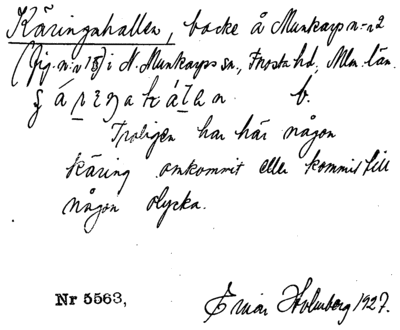 Käringahallen, backe å Munkarp n:r 2
(fig. n:r 15) i N. Munkarps sn, Frosta hd, Mlm. län.
b.
Troligen har här någon
käring omkommit eller kommit till
någon olycka.
Nr 5563,
Einar Holmberg 1927.